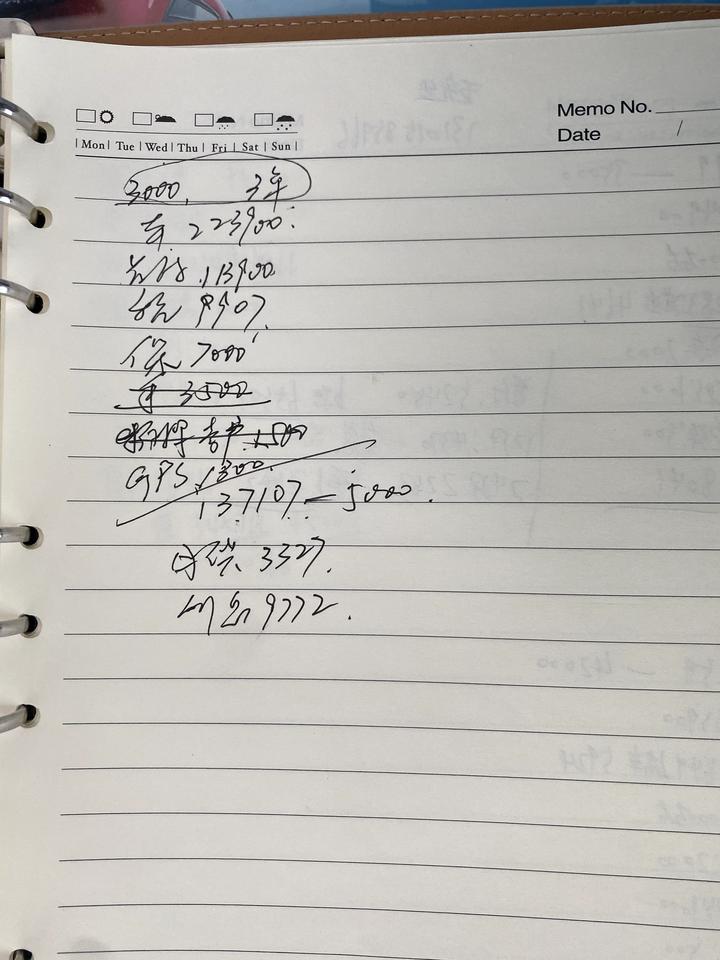 Memo No.
Date /
Mon | Tue | Wed | Thu | Fri | Sat | Sun |
3000, 3年
车 223900.
首付 113900
税 9907
保 7000
3500
1500
GPS 1300.
137107 — 5000.
月供 3327.
利息 9772.